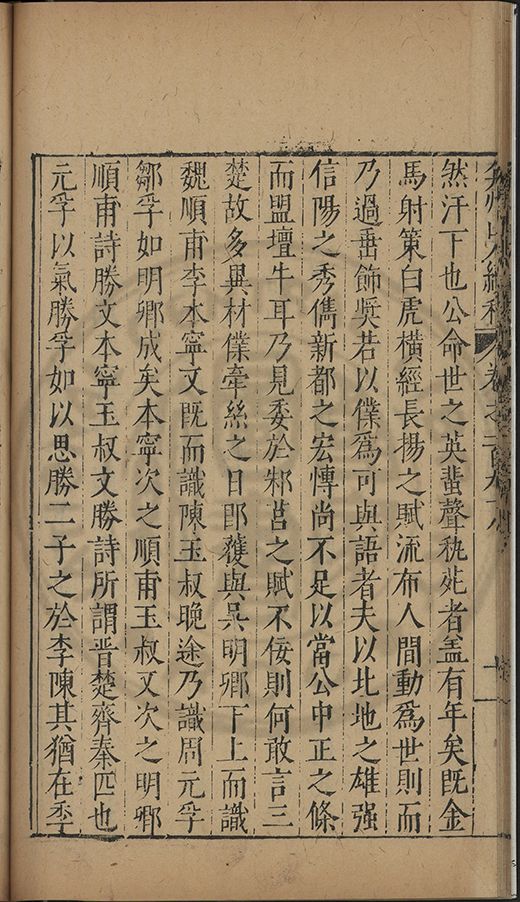 弇州山人續稿 卷之
然汗下也公命世之英蜚聲秇苑者盖有年矣旣金
馬射策白虎横經長揚之賦流布人間動爲世則而
乃過垂飾奬若以僕爲可與語者夫以北地之雄强
信陽之秀儁新都之宏愽尚不足以當公中正之條
而盟壇牛耳乃見委於邾莒之賦不佞則何敢言三
楚故多異材僕牽絲之日即獲與吳明卿下上而識
魏順甫李本寧文旣而識陳玉叔晚途乃識周元孚
鄒孚如明卿成矣本寧次之順甫玉叔又次之明卿
順甫詩勝文本寧玉叔文勝詩所謂晋楚齊秦匹也
元孚以氣勝孚如以思勝二子之於李陳其猶在季